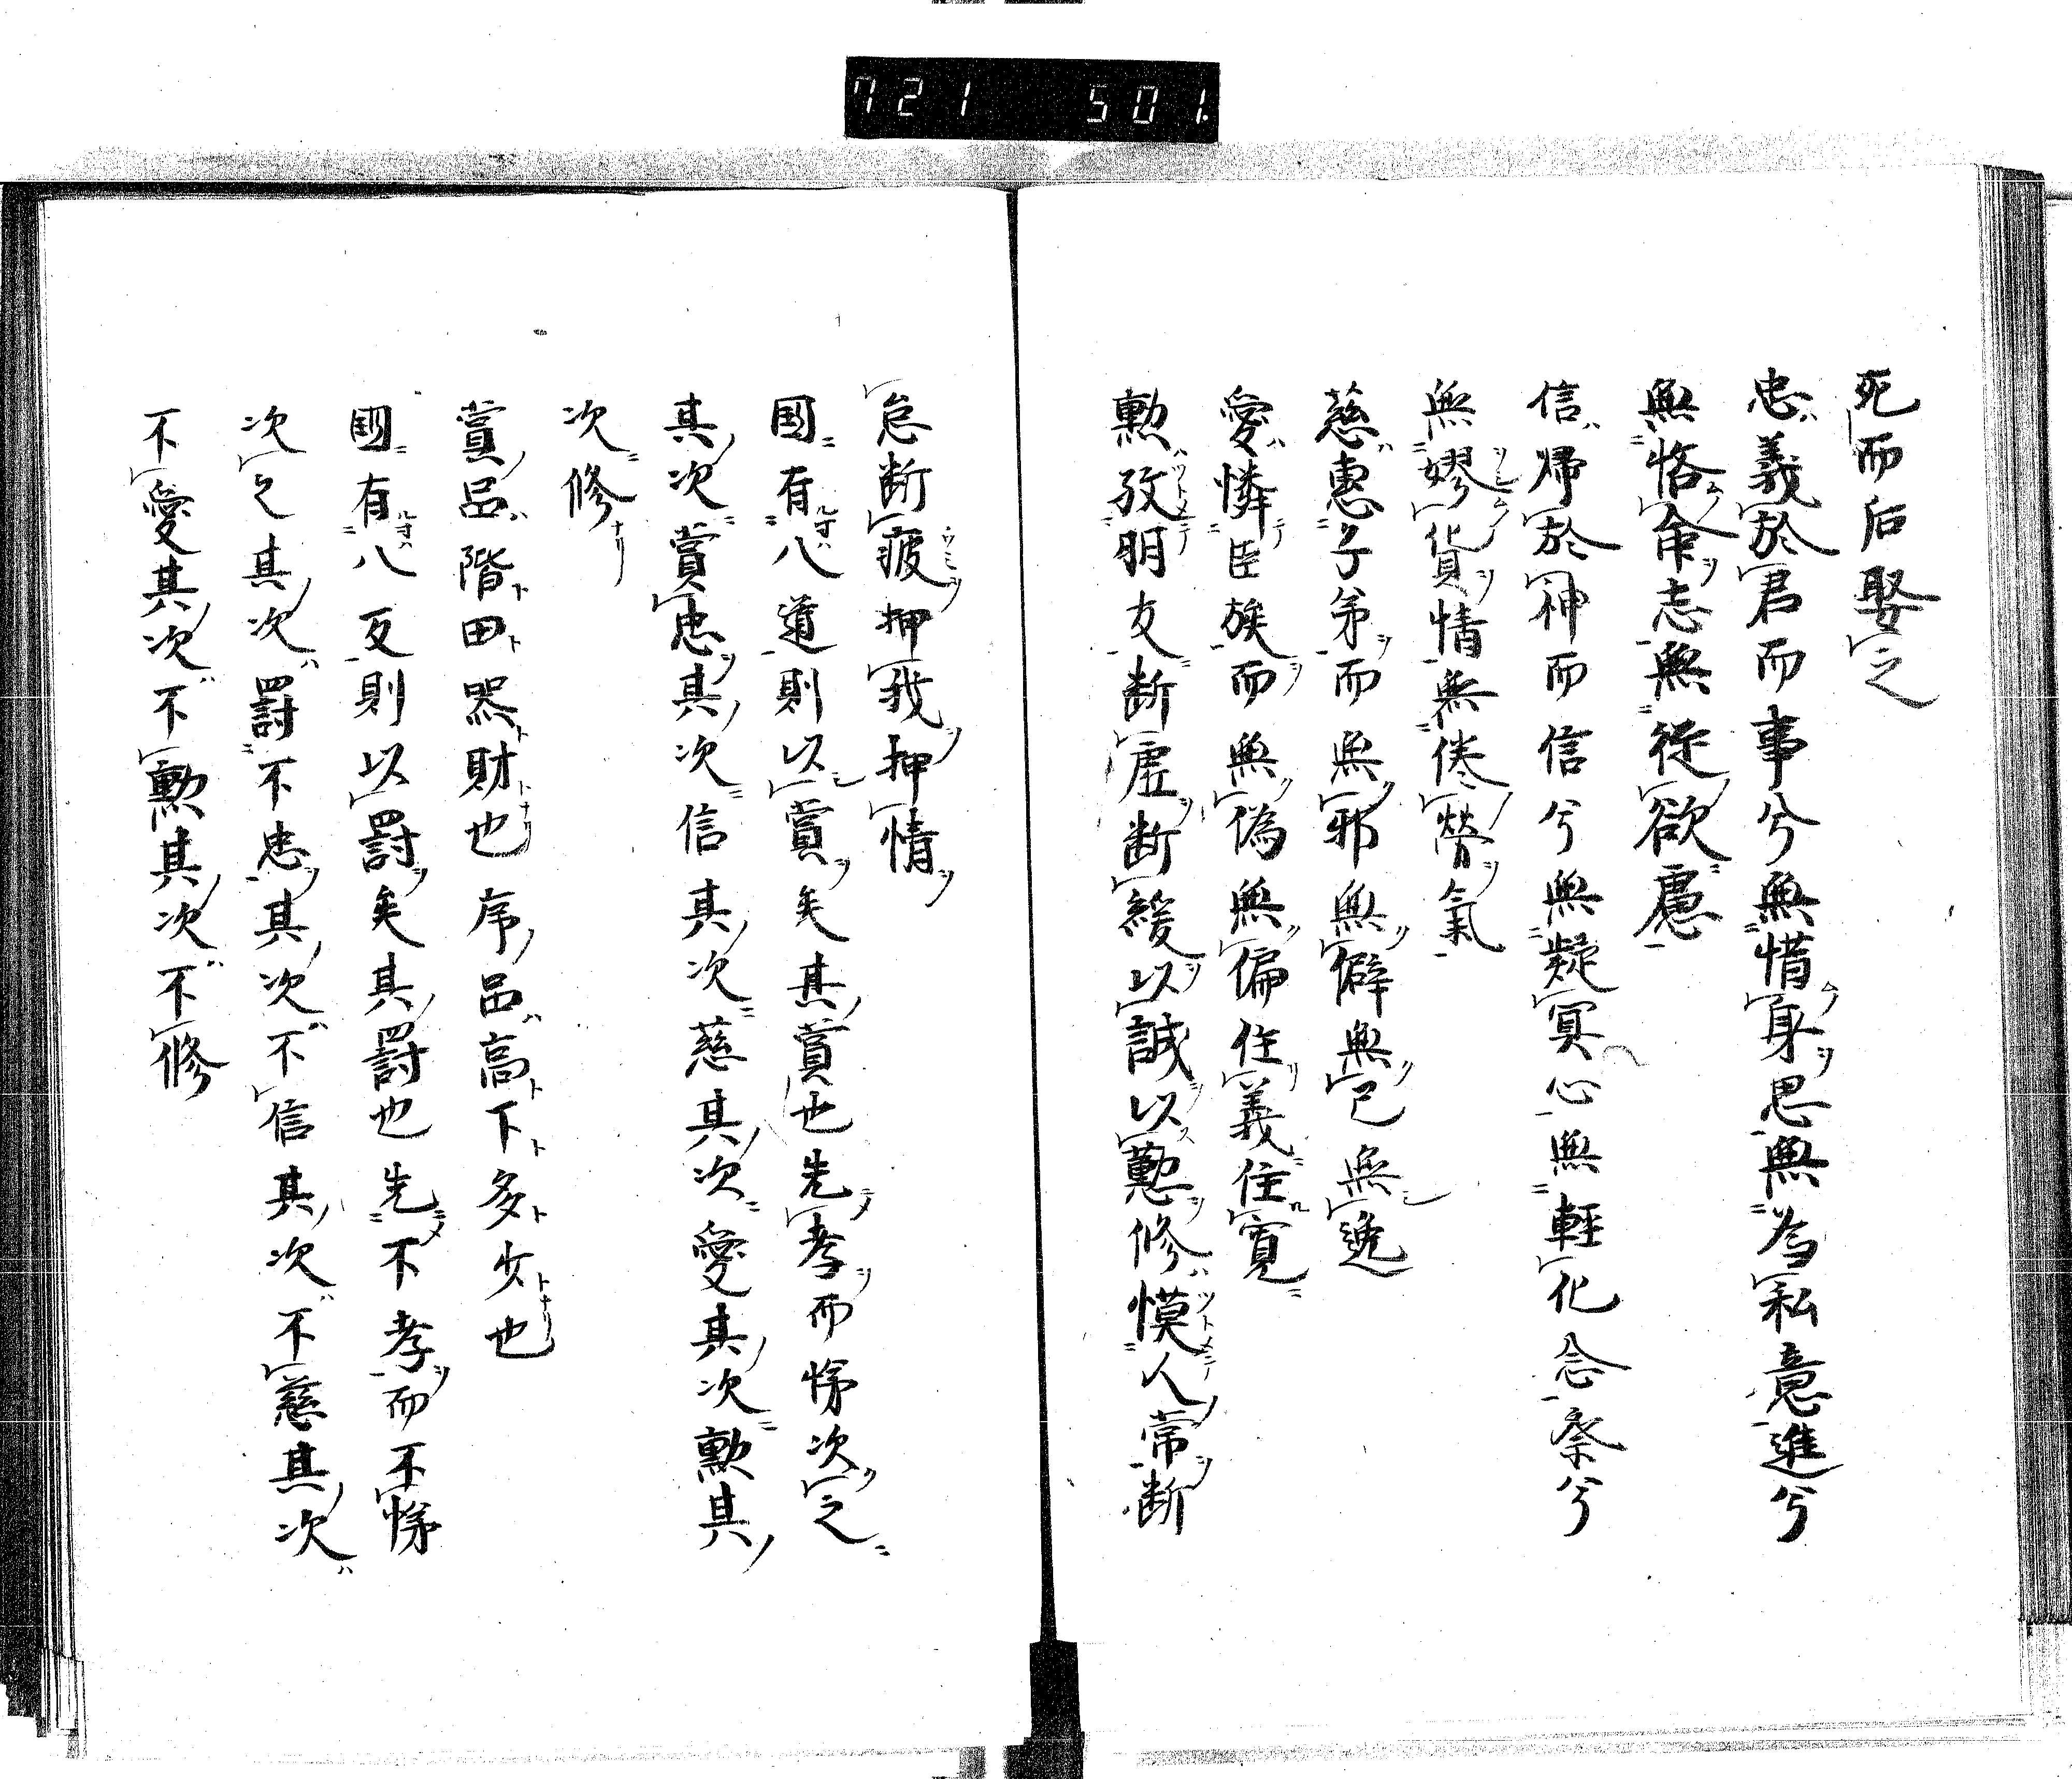 721 501.
死而后娶之
忠義於君而事兮無惰身思無為私意進兮
無悋命志無従欲慮
信帰於神而信兮無疑冥心無軽化念祭兮
無嫪貨情無倦労氣
慈恵子弟而無邪無僻無己無逸
愛憐臣族而無偽無偏住義住寛
勲孜朋友断虚断緩以誠以懃修慔人常断
怠断疲押我押情
国有八道則以賞矣其賞也先孝而悌次之
其次賞忠其次信其次慈其次愛其次勲其
次修
賞品階田器財也序品高下多少也
國有八反則以罰矣其罰也先不孝而不悌
次之其次罰不忠其次不信其次不慈其次
不愛其次不勲其次不修